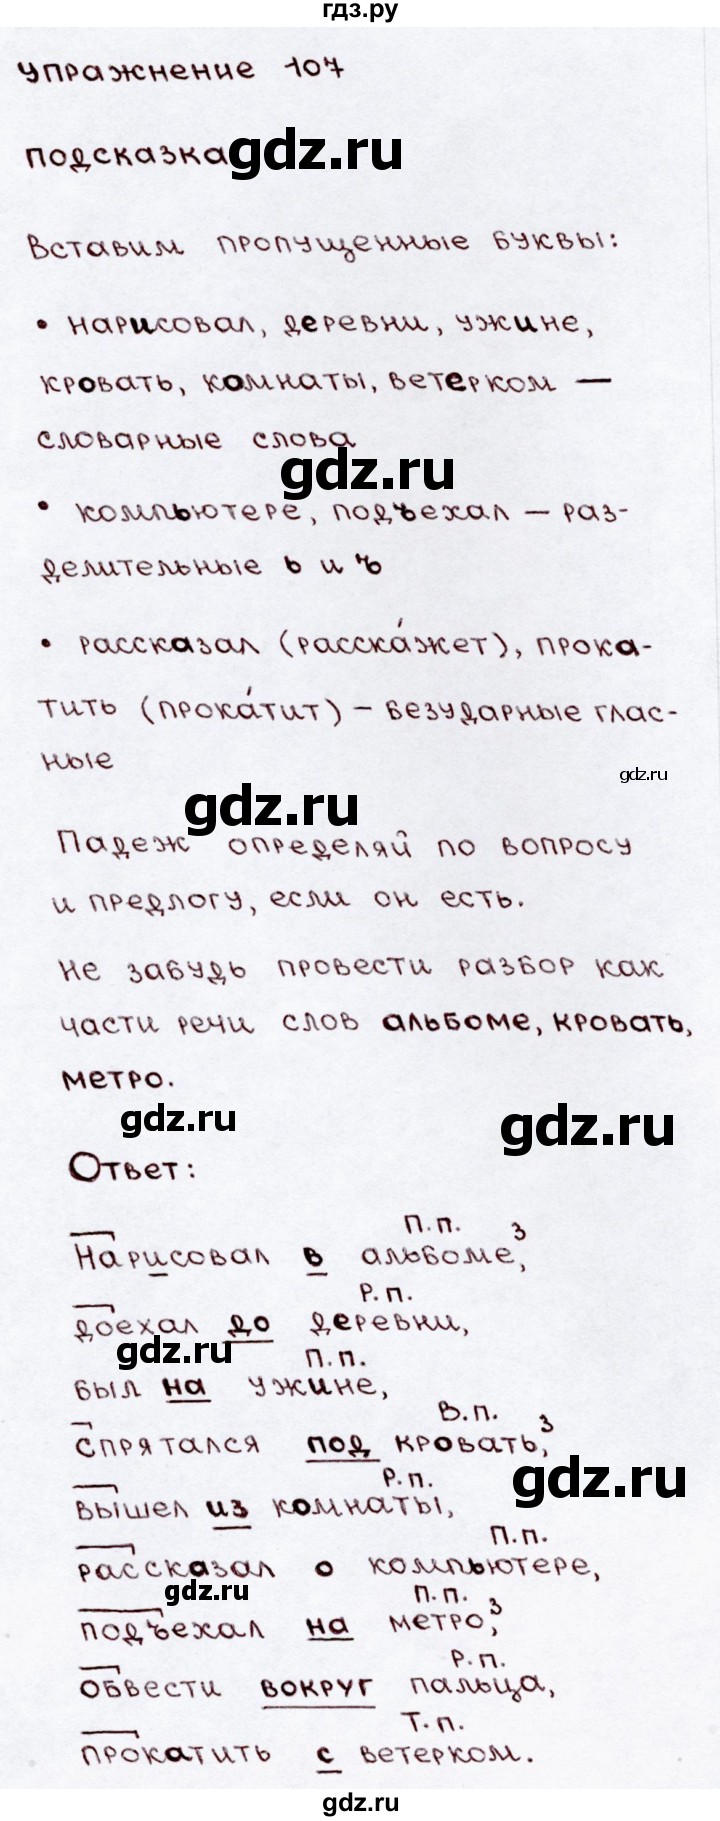 гдз.ру
Упражнение 107
подсказка gdz.ru
Вставим пропущенные буквы:
• нарисовал, деревни, ужине,
кровать, комнаты, ветерком —
словарные слова
gdz.ru
• компьютере, подъехал — раз-
делительные ь и ъ
• рассказал (расска́жет), прока-
тить (прока́тит) — безударные глас-
ные
gdz.ru
gdz.ru
Падеж определяй по вопросу
и предлогу, если он есть.
Не забудь провести разбор как
части речи слов альбоме, кровать,
метро.
gdz.ru
gdz.ru
Ответ:
П.п. 3
Нарисовал в альбоме,
Р.п.
доехал до деревни,
gdz.ru
П.п.
был на ужине,
В.п. 3
спрятался под кровать,
gdz.ru
Р.п.
вышел из комнаты,
П.п.
рассказал о компьютере,
gdz.ru
П.п. 3
подъехал на метро,
Р.п.
обвести вокруг пальца,
Т.п.
прокатить с ветерком.
gdz.ru